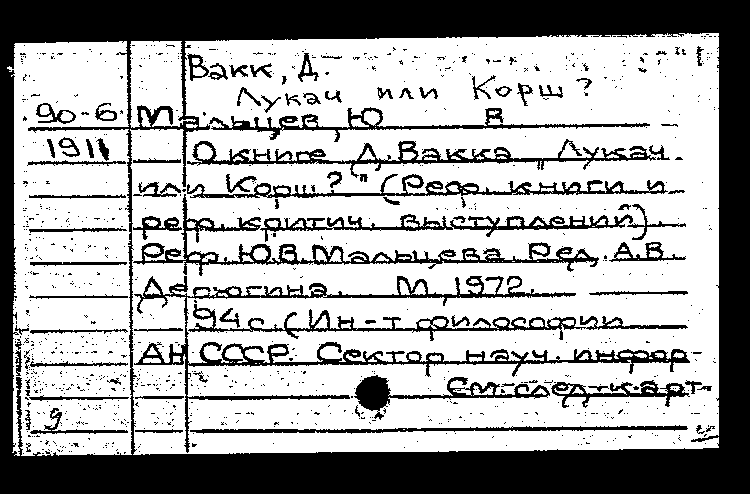 Вакк, Д.
Лукач или Корш?
90-6 Мальцев, Ю В
1911 О книге Д. Вакка „Лукач
или Корш?" (Реф. книги и
реф. критич. выступлений).
Реф. Ю.В. Мальцева. Ред. А.В.
Дерюгина. М., 1972.
94 с. (Ин-т философии
АН СССР. Сектор науч. инфор-
См. след. карт.
9